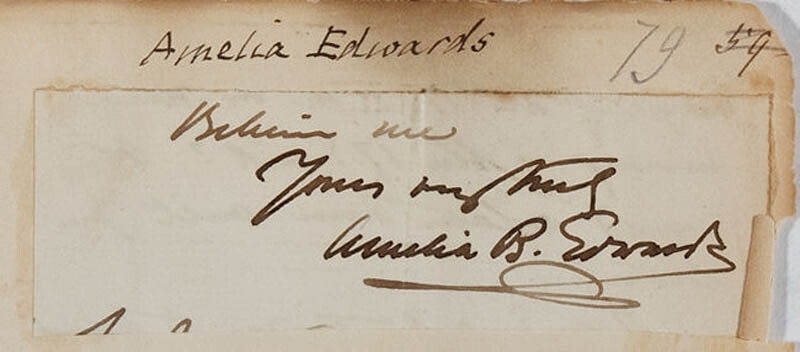 Amelia Edwards 79 59
Believe me
Yours very truly
Amelia B. Edwards